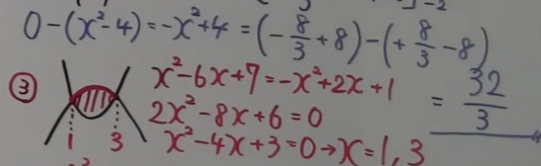 0-(x²-4)=-x²+4=(-8/3+8)-(+8/3-8)
= 32/3
③ x²-6x+7=-x²+2x+1
2x²-8x+6=0
x²-4x+3=0→x=1,3
1 3